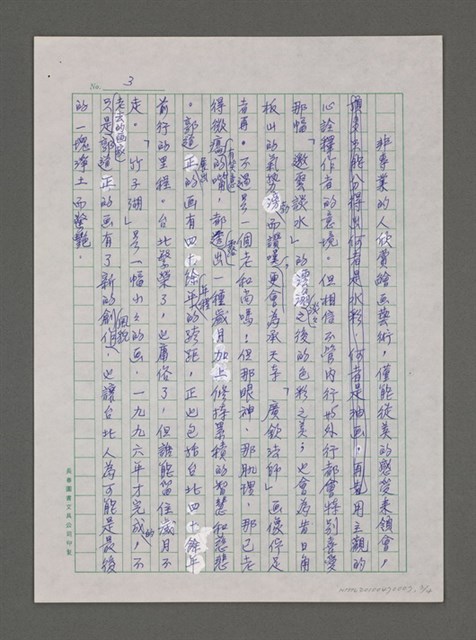 No. 3
非專業的人欣賞繪畫藝術，僅能從美的感受來領會，
頂多只能分得出何者是水彩，何者是油画，再加用主觀的
心詮釋作者的意境。但相信不管內行或外行都會特別喜愛
那幅「邀雲談水」的濛濛之後的色彩之美；也會為昔日角
板山的氣勢而讚嘆，更會為承天寺「廣欽法師」画像佇足
者再。不過是一個老和尚嗎！但那眼神、那肌理，那已老
得微癟的嘴，都透出一種歲月加上修持累積的智慧和慈悲
。郭道正的画有四十餘年的跨距，正也包括台北四十餘年
前行的里程。台北繁榮了，也庸俗了，但誰能留住歲月不
走。「竹子湖」是一幅小小的画，一九九六年才完成的，不
只是郭道正的画有了新的創作，也讓台北人為可能是最後
的一塊淨土而驚艷。
老去的画家
長春圖書文具公司印製